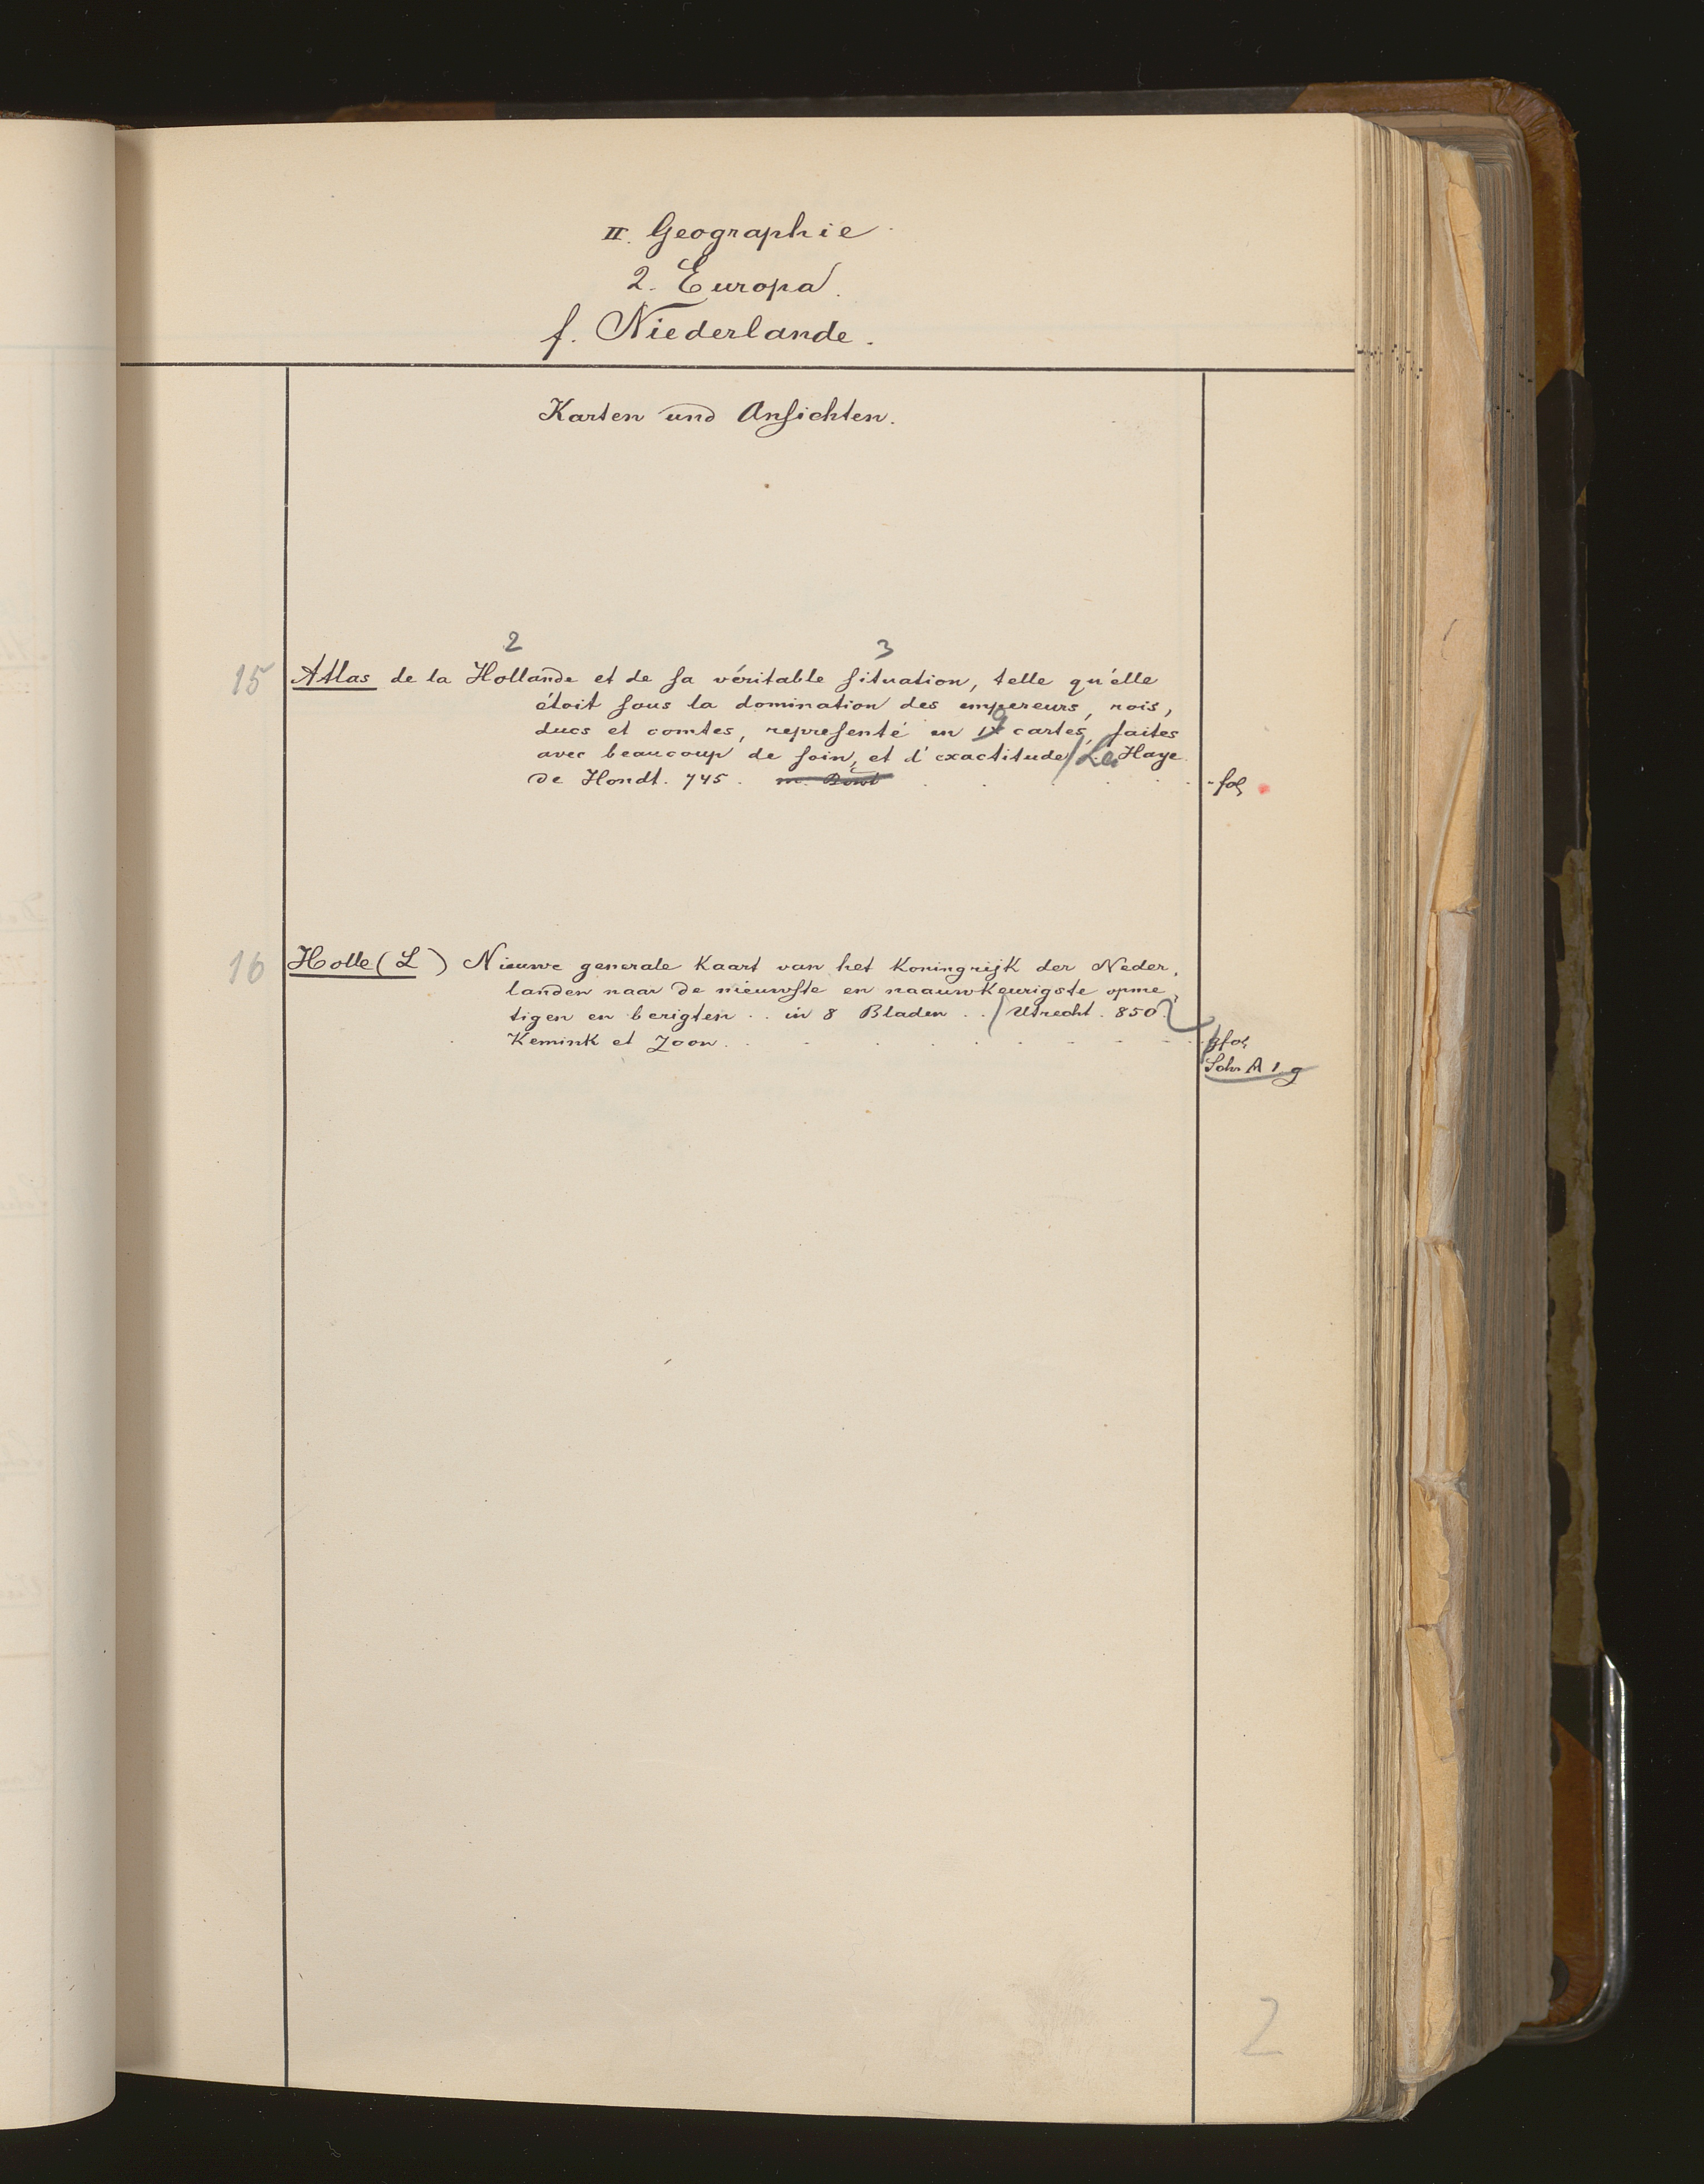 II. Geographie
2. Europa.
f. Niederlande.
Karten und Ansichten.
2 3
15 Atlas de la Hollande et de sa véritable situation, telle qu'elle
étoit sous la domination des empereurs, rois,
ducs et comtes, representé en 9 cartes, faites
avec beaucoup de soin, et d'exactitude / La Haye
de Hondt. 745. - fol
16 Holle (L) Nieuwe generale Kaart van het Koningrijk der Neder,
landen naar de nieuwste en naauwkeurigste opme,
tigen en berigten .. in 8 Bladen .. / Utrecht. 850.
Kemink et Zoon. fol
Schr A 1 g
2